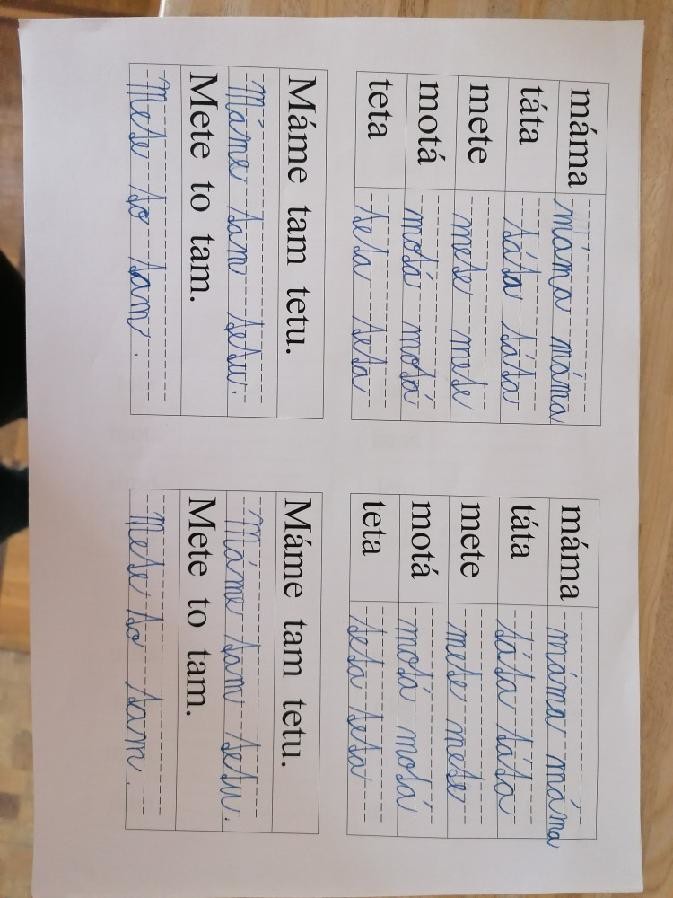 máma máma máma
táta táta táta
mete mete mete
motá motá motá
teta teta teta
Máme tam tetu.
Máme tam tetu.
Mete to tam.
Mete to tam.
máma máma máma
táta táta táta
mete mete mete
motá motá motá
teta teta teta
Máme tam tetu.
Máme tam tetu.
Mete to tam.
Mete to tam.